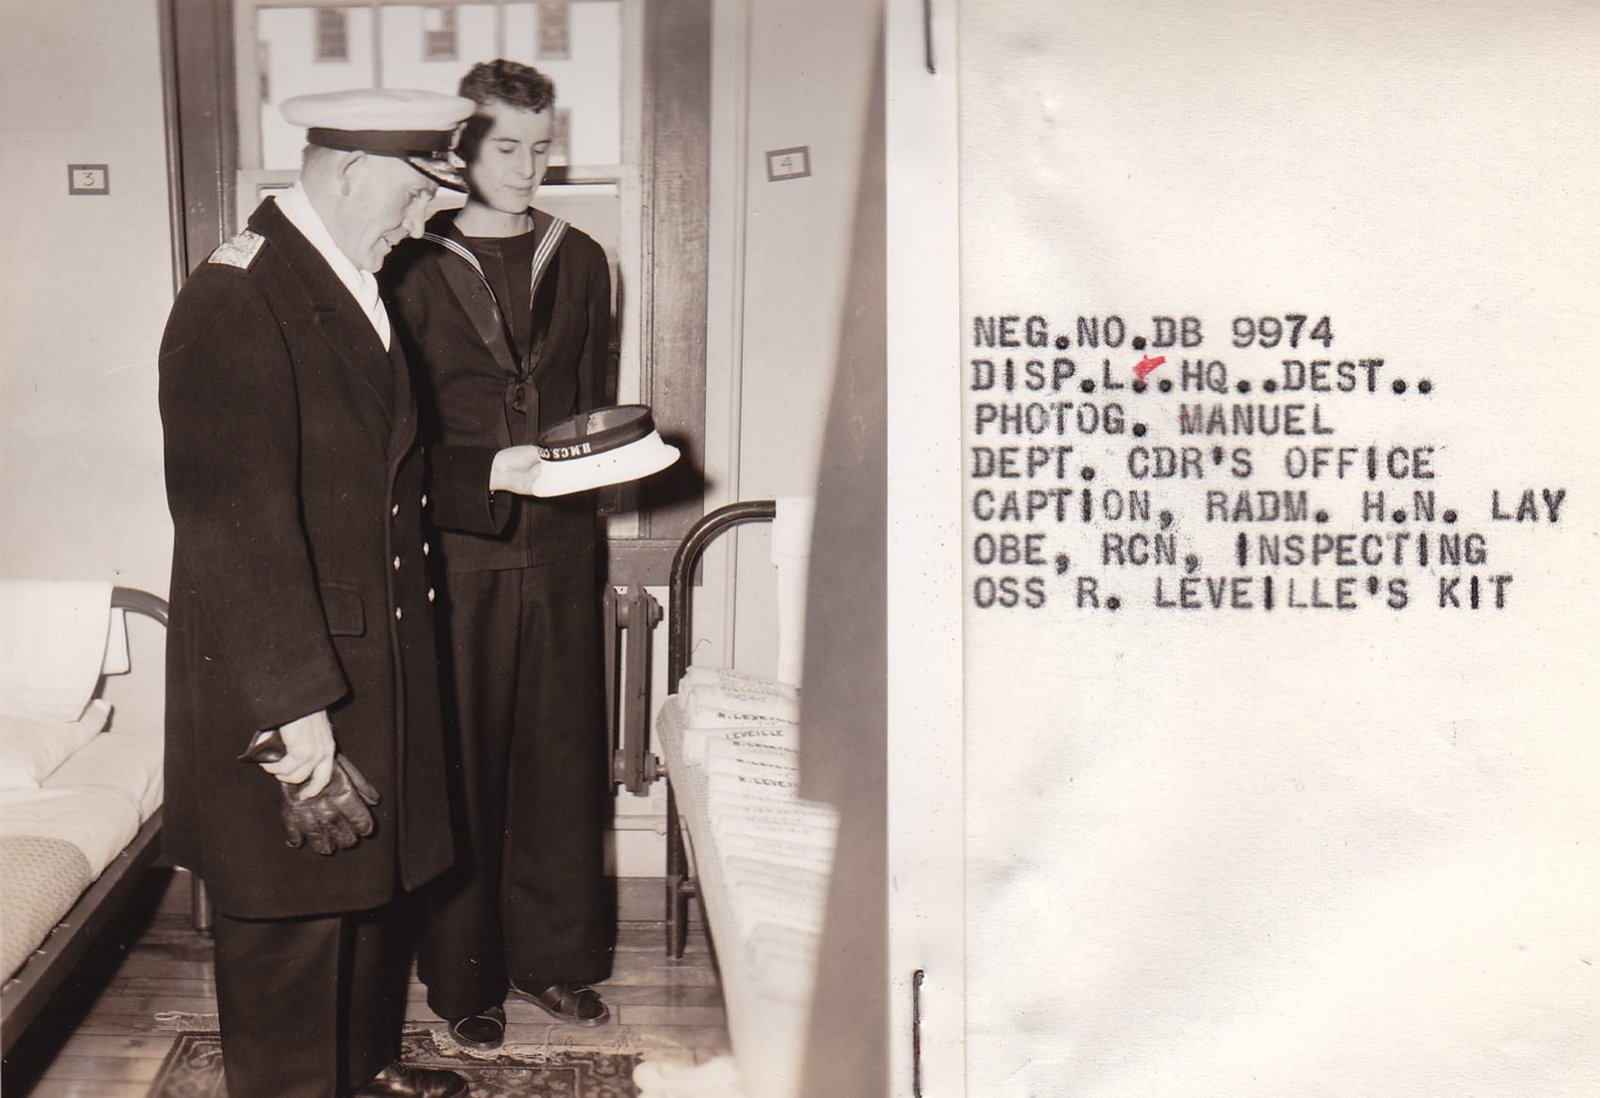 3
4
H.M.C.S.
R.LEVEI
LEVEILLE
R.LEVEI
NEG.NO.DB 9974
DISP.L...HQ..DEST..
PHOTOG. MANUEL
DEPT. CDR'S OFFICE
CAPTION, RADM. H.N. LAY
OBE, RCN, INSPECTING
OSS R. LEVEILLE'S KIT